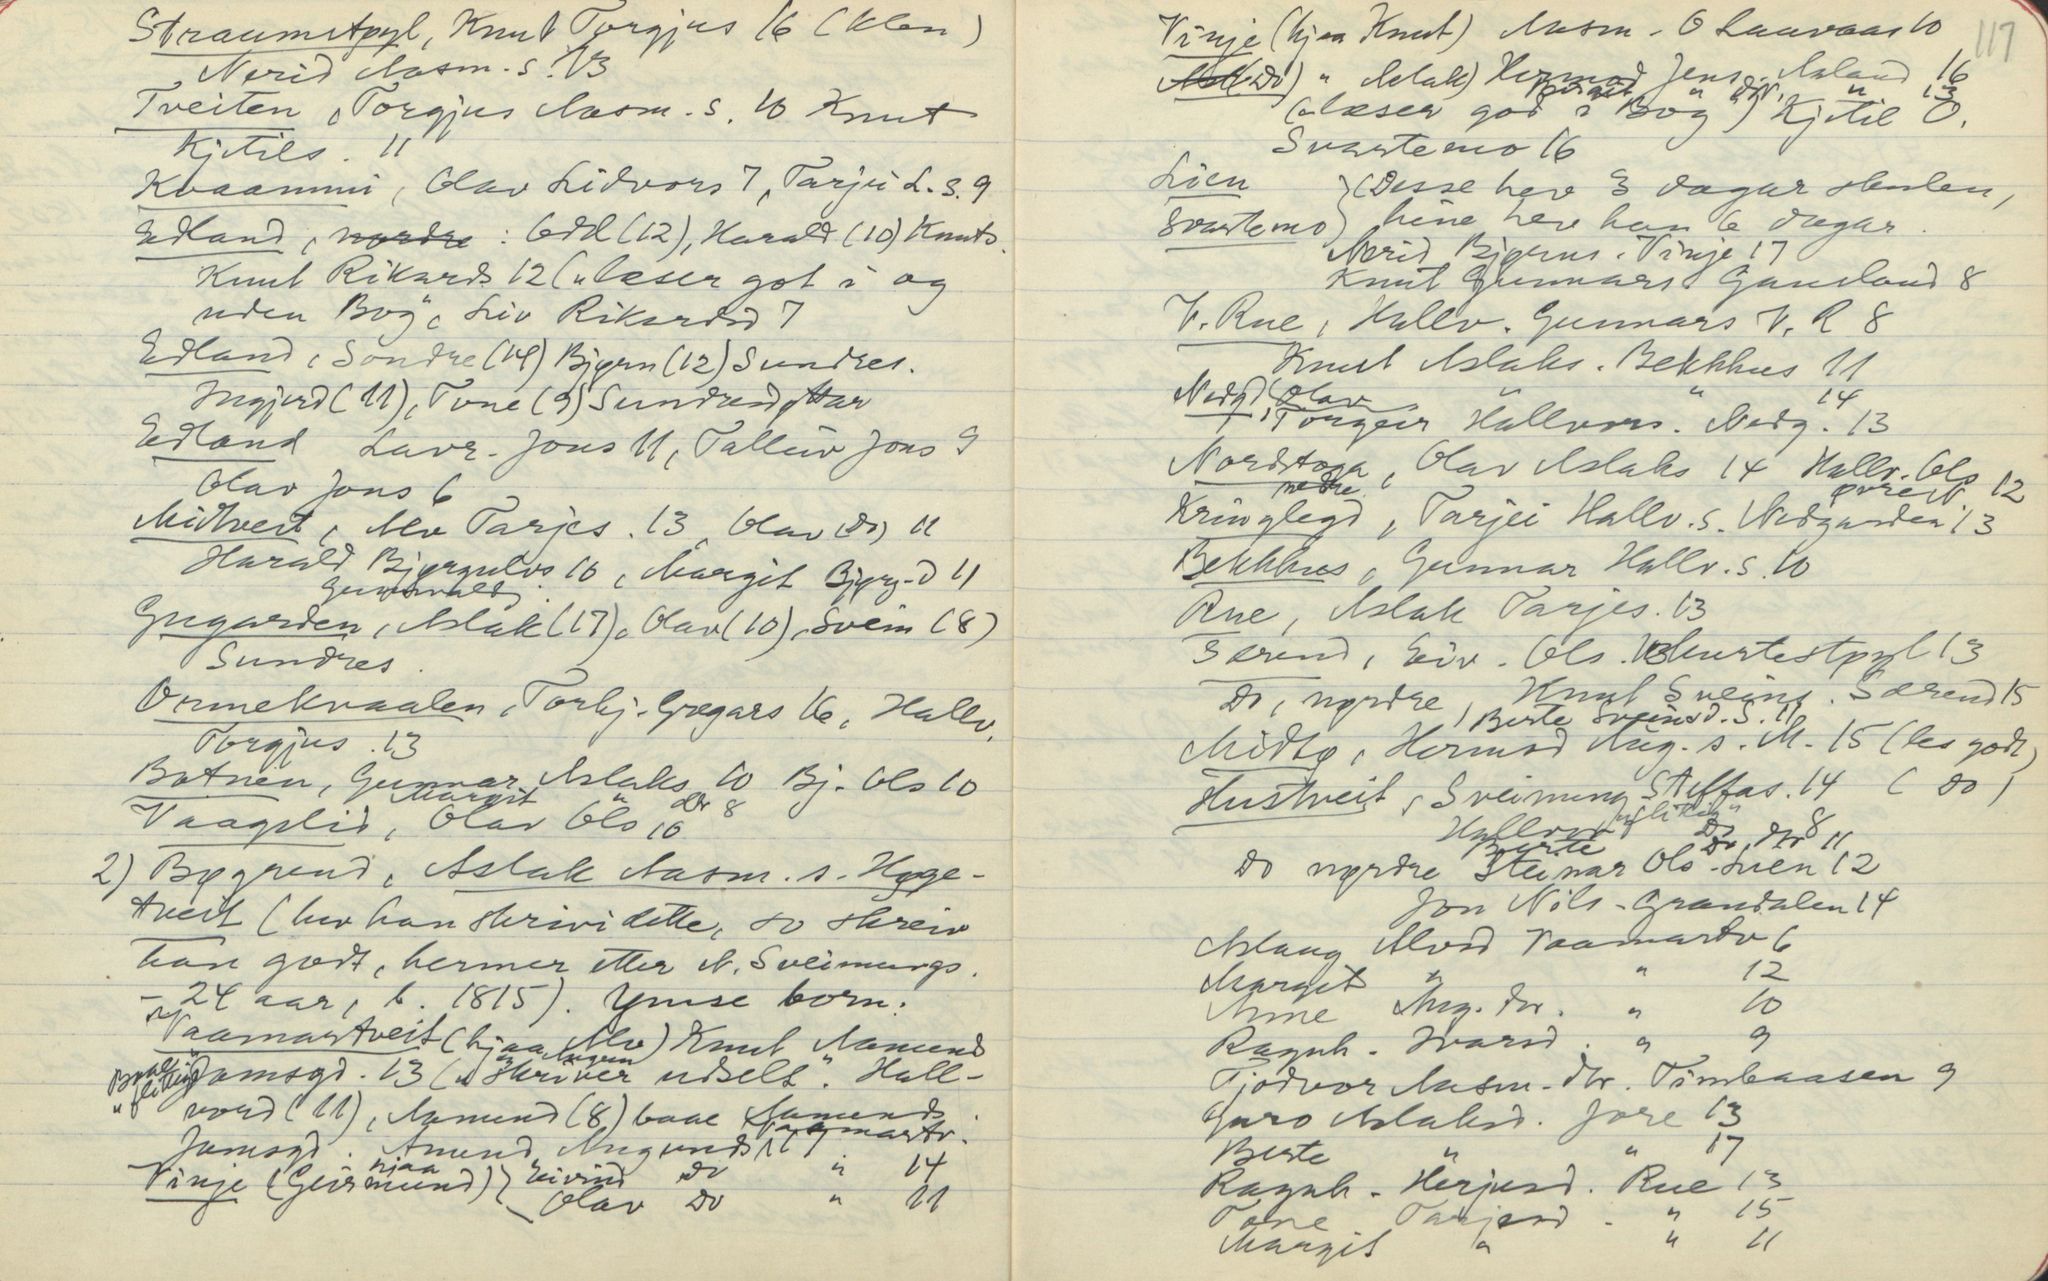 Straumstøyl, Knut Torgjus 16 (klen)
Nerid Aasm. s. 13
Tveiten, Torgjus Aasm. s. 10 Knut
Kjetils. 11
Kvaammi, Olav Lidvors 7, Tarjei L. s. 9
Edland, nordre: Odd (12), Harald (10) Knuts.
Knut Rikards 12 ("læser got i og
uden Bog", Liv Rikardsd 7
Edland, Søndre (14) Bjørn (12) Sundres.
Ingjerd (11), Tone (9) Sundresdøttar
Edland Lavr. Jons 11, Talleiv Jons 9
Olav Jons 6
Midtveit, Alv Tarjes. 13, Olav (Do) 11
Harald Bjørgulvs 10, Margit Bjørg.d 11
Gunnvald
Gugarden, Aslak (17), Olav (10), Svein (8)
Sundres.
Ormekvaalen, Torbj. Gregars 16, Hallv.
Torgjus. 13
Botnen, Gunnar Aslaks 10 Bj. Ols 10
Margit " dtr 8
Vaagslid, Olav Ols 10
2) Bøgrend, Aslak Aasm. s. Høge-
tveit (hev han skrivi dette, so skreiv
han godt, hermer etter N. Sveinungs.
- 24 aar, f. 1815). Ymse born:
Vaamartveit (hjaa Alv) Knut Aamund
Jamsgd. 13 ("skriver udselt". Hall-
"flittig"
vord (11), Aamund (8) baae Aamunds
Jamsgd. Amund Augunds Vaamartv. 17
Vinje (hjaa Geirmund) } Eivind Do " 14
Olav Do " 11
117
Vinje (hjaa Knut) Aasm. O Laavaas 10
(Do) " Aslak) Hermod Jens. Asland 16
Birgit " dtr. " 13
("læser god i Bog") Kjetil O.
Svartemo 16
Lien } (Desse hev 3 dagar skulen,
Svartemo } hine hev han 6 dagar.
Nerid Bjørns. Vinje 17
Knut Gunnars Gausland 8
V. Rue, Hallv. Gunnars V. R 8
Knut Aslaks. Bekkhus 11
Nedg. (Olav " " 14
Torgeir Hallvors. Nedg. 13
Nordstoga, Olav Aslaks 14 Hallv. Ols 12
nedre
Kringlegd, Tarjei Hallv. s. Nedgarden 13
Bekkhus, Gunnar Hallv. s. 10
Rue, Aslak Tarjes. 13
Særend, Eiv. Ols. 13
Do, nørdre, Knut Sveins. Særend 15
Berte Sveinsd. S. 11
Midtø, Hermod Aug. s. M. 15 (les godt)
Hustveit, Sveinung Steffas. 14 (Do)
Hallvor "flittig" Do 8
Berte Do, dtr 11
Do nørdre Steinar Ols. Lien 12
Jon Nils. Grandalen 14
Aslaug Alvsd Vaamartv 6
Margit " " 12
Anne Aug. dtr. " 10
Ragnh. Ivarsd. " 9
Tjodvor Aasm. dtr. Timbaasen 9
Guro Aslaksd. Jore 13
Berte " " 17
Ragnh. Herjusd. Rue 13
Tone Tarjesd. " 15
Margit " " 11